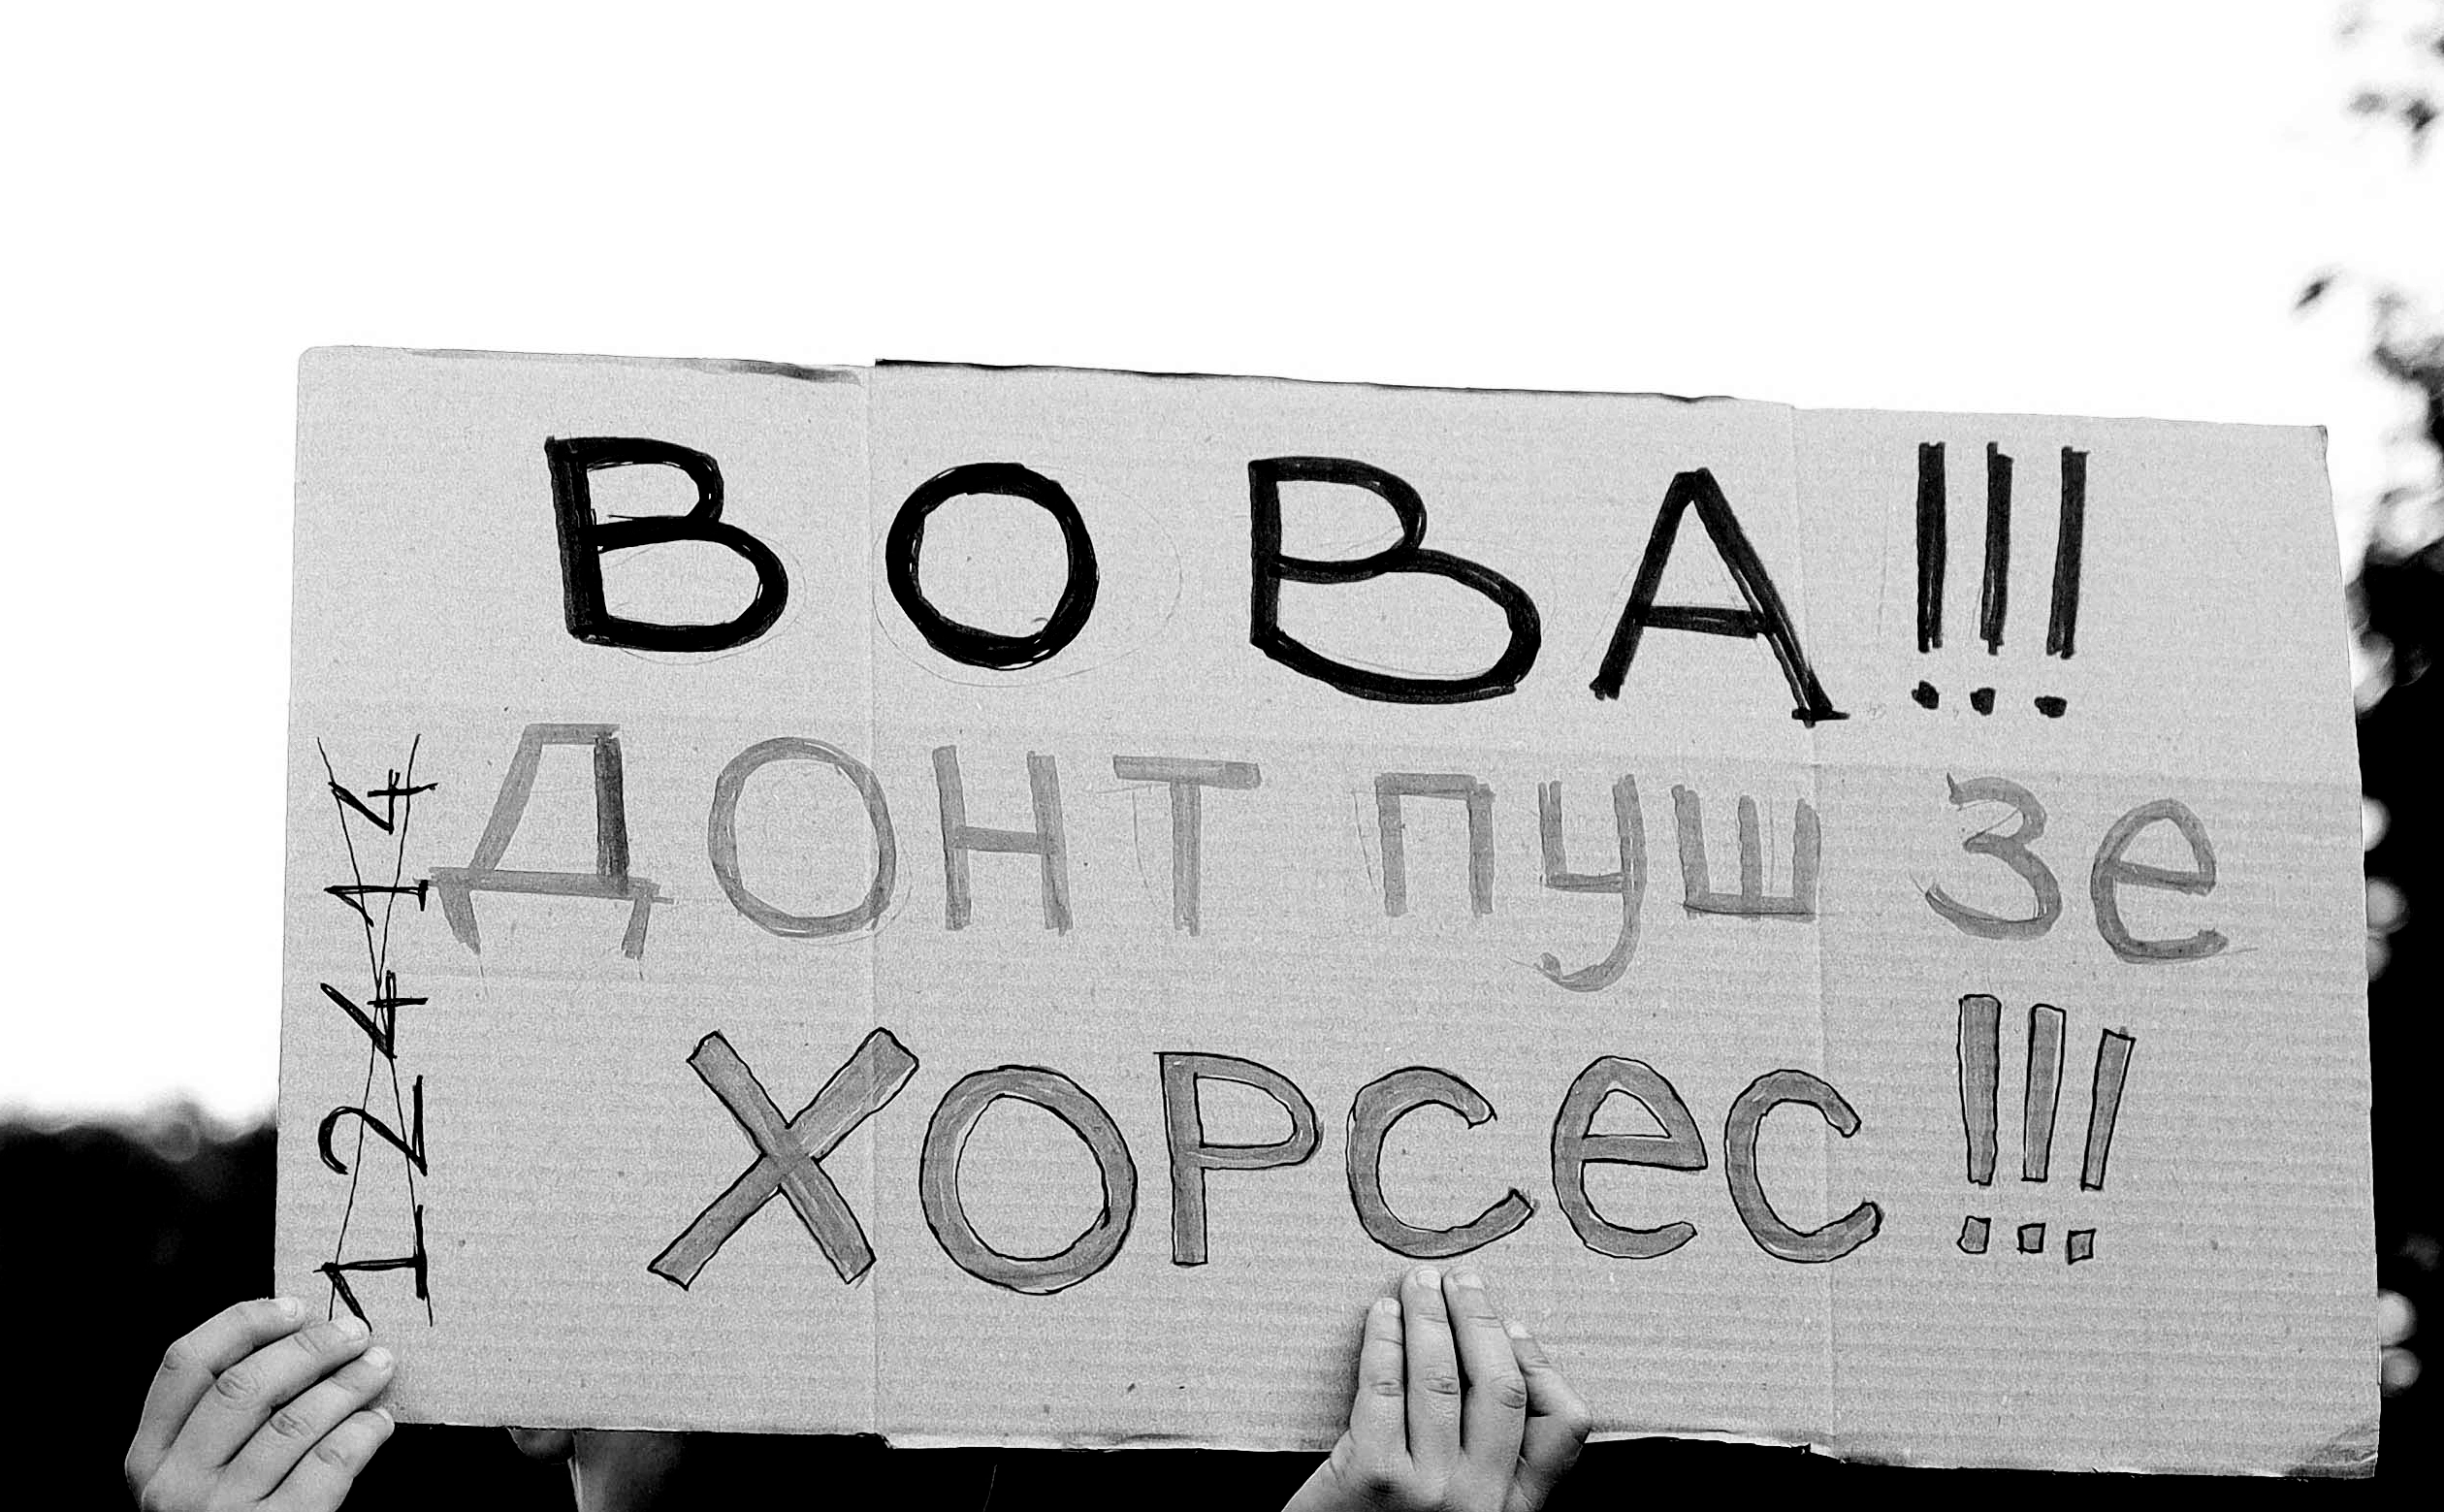 ВОВА!!!
ДОНТ ПУШ Зе
ХОРСеС!!!
12414